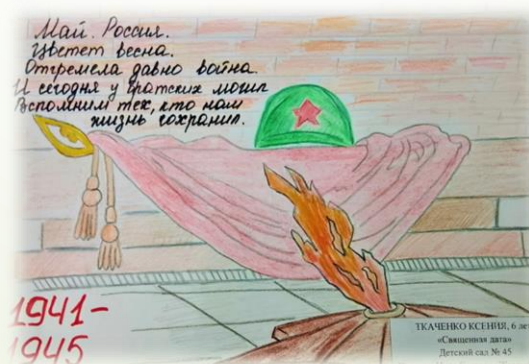 Май. Россия.
Цветет весна.
Отгремела давно война.
И сегодня у братских могил
Вспомним тех, кто нам
жизнь сохранил.
1941-
1945
ТКАЧЕНКО КСЕНИЯ, 6 лет
«Священная дата»
Детский сад № 45